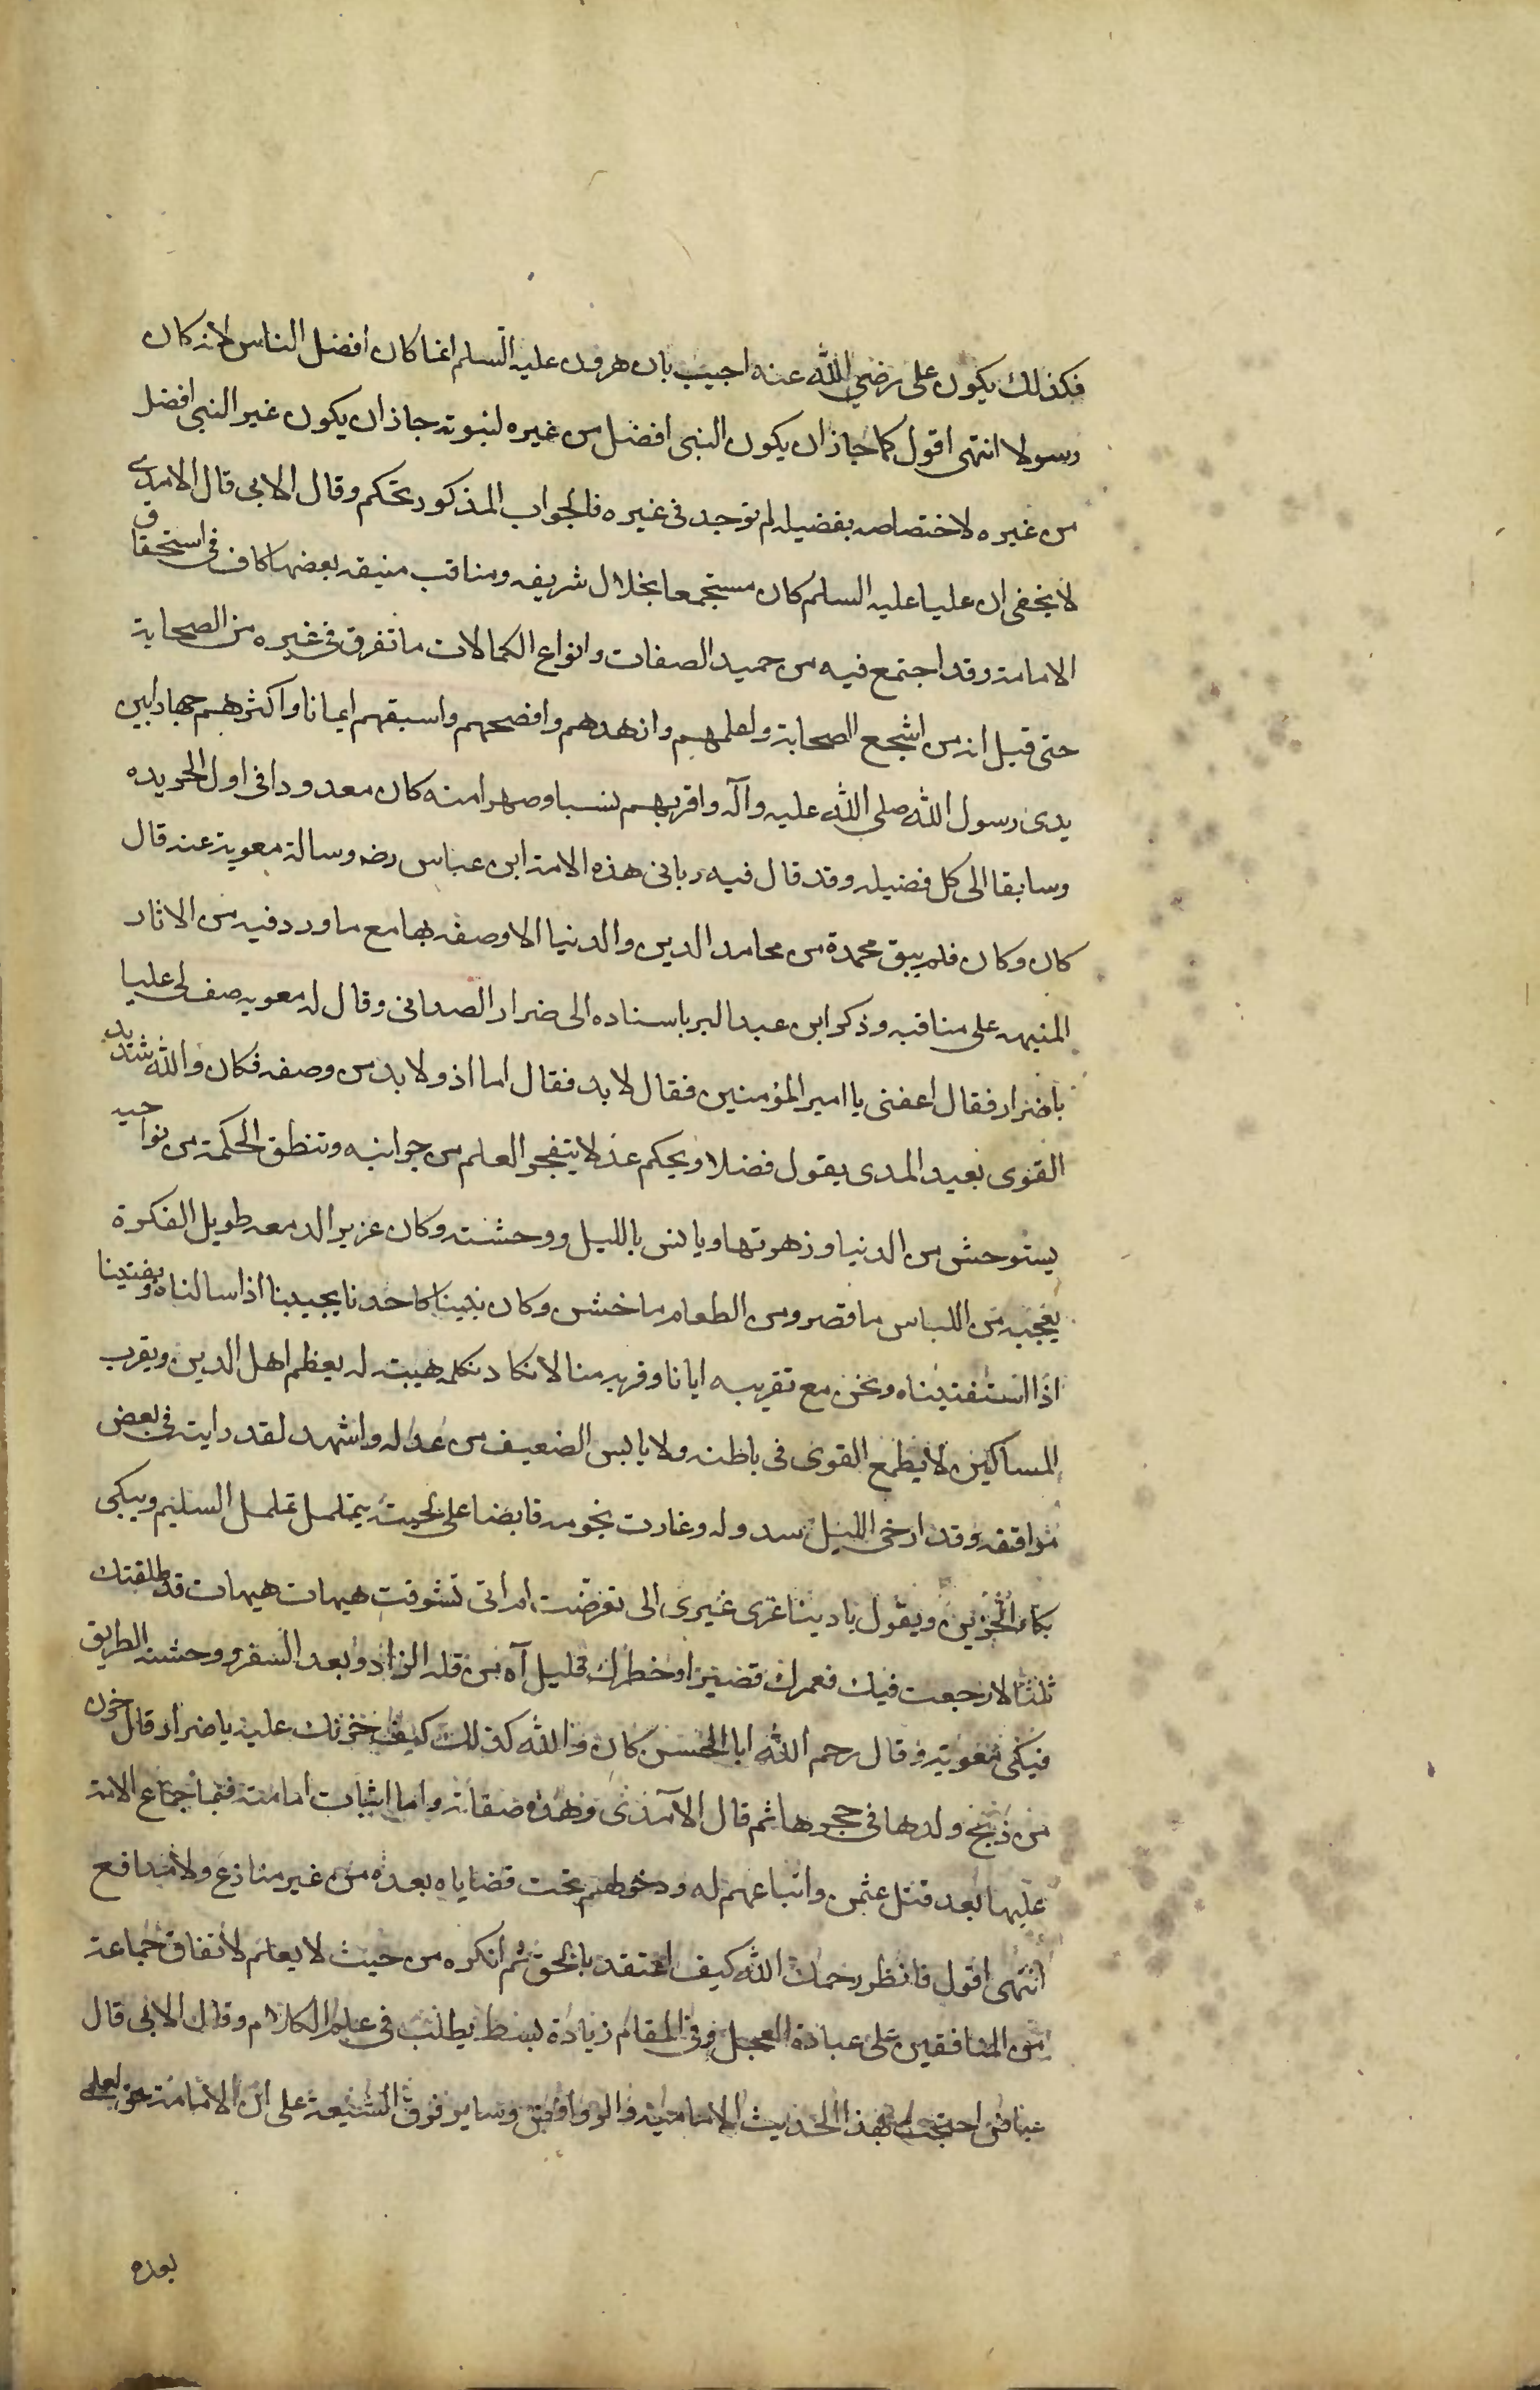 فكذلك يكون على رضي الله عنه اجيب بان هرون عليه السلم انما كان افضل الناس لانه كان
رسولا انتهى اقول كما جاز ان يكون النبى افضل من غيره لنبوته جاز ان يكون غير النبى افضل
من غيره لاختصاصه بفضيله لم توجد فى غيره فالجواب المذكور تحكم وقال الابى قال الامدى
لا يخفى ان عليا عليه السلم كان مستجمعا بخلال شريفه ومناقب منيفه بعضها كاف فى استحقاق
الامامة وقد اجتمع فيه من حميد الصفات وانواع الكمالات ما تفرق فى غيره من الصحابة
حتى قيل انه من اشجع الصحابة واعلمهم وازهدهم وافصحهم واسبقهم ايمانا واكثرهم جهادا بين
يدى رسول الله صلى الله عليه وآله واقربهم نسبا وصهرا منه كان معدودا فى اول الجريده
وسابقا الى كل فضيله وقد قال فيه ربانى هذه الامة ابن عباس رضه وسالة معوية عنه قال
كان وكان فلم يبق محمدة من محامد الدين والدنيا الا وصفه بها مع ما ورد فيه من الاثار
المنبهه على مناقبه وذكر ابن عبد البر باسناده الى ضرار الصدانى وقال له معويه صف لى عليا
يا ضرار فقال اعفنى يا امير المؤمنين فقال لا بد فقال اما اذ ولا بد من وصفه فكان والله شديد
القوى بعيد المدى يقول فضلا ويحكم عدلا يتفجر العلم من جوانبه وتنطق الحكمة من نواحيه
يستوحش من الدنيا وزهرتها ويانس بالليل ووحشته وكان غزير الدمعه طويل الفكرة
يعجبه من اللباس ما قصر ومن الطعام ما خشن وكان بيننا كاحدنا يجيبنا اذا سالناه ويفتينا
اذا استفتيناه ونحن مع تقريبه ايانا وقربه منا لا نكاد نكلمه هيبته له يعظم اهل الدين ويقرب
المساكين لا يطمع القوى فى باطله ولا يايس الضعيف من عدله واشهد لقد رايته فى بعض
مواقفه وقد ارخى الليل سدوله وغارت نجومه قابضا على لحيته يتململ تململ السليم ويبكى
بكاء الحزين ويقول يا دينا غرى غيرى الى تعرضت ام اتى تشوقت هيهات هيهات قد طلقتك
ثلثا لا رجعت فيك فعمرك قصير وخطرك قليل آه من قله الزاد وبعد السفر ووحشه الطريق
فبكى معوية وقال رحم الله ابا الحسن كان والله كذلك كيف حزنك عليه يا ضرار قال حزن
من ذبح ولدها فى حجرها ثم قال الآمدى وهذه صفاته واما اثبات امامته فباجماع الامة
عليها بعد قتل عثمن واتباعهم له ودخولهم تحت قضاياه بعده من غير منازع ولا مدافع
انتهى اقول فانظر رحمك الله كيف اعتقد بالحق ثم انكره من حيث لا يعلم لاتفاق جماعة
من المنافقين على عبادة العجل وفى المقام زيادة بسط يطلب فى علم الكلام وقال الابى قال
عياض احتجت بهذا الحديث الامامية والروافض وساير فرق الشيعة على ان الامامة حق لعلى
بعده